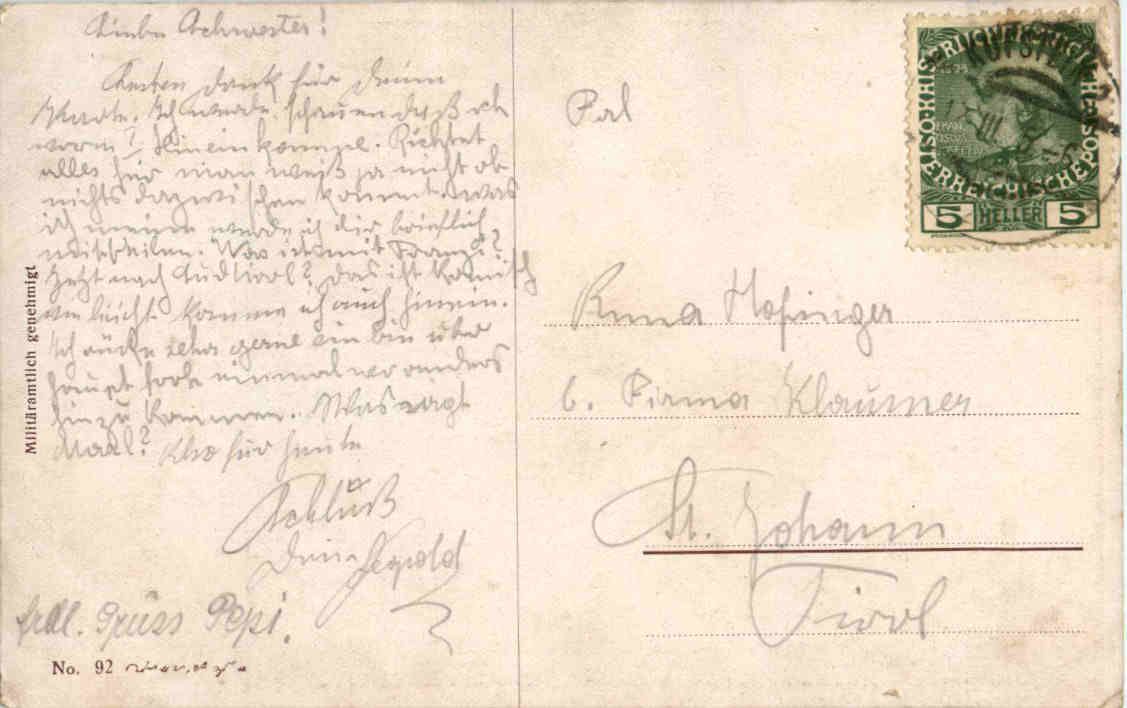 Liebe Schwester!
Besten Dank für Deine
Karte. Ich werde schauen daß ich
hinein komme. Richtet
alles für man weiß ja nicht ob
nichts dazwischen kommt was
ich meine werde ich dir brieflich
mitteilen. Was ist mit Franzi?
Jetzt nach Südtirol? Das ist
leicht komme ich auch hinein.
Ich rücke sehr gerne ein bin über
haupt froh einmal wo anders
hinzu kommen. Was sagt
Also für heute
Schluß
Dein Lepold
frdl. Gruss Pepi.
No. 92
Militäramtlich genehmigt
KUFSTEIN
KAISERLICHE KÖNIGLICHE ÖSTERREICHISCHE POST
5 HELLER 5
Hofinger
b. Firma Klausner
St. Johann
Tirol